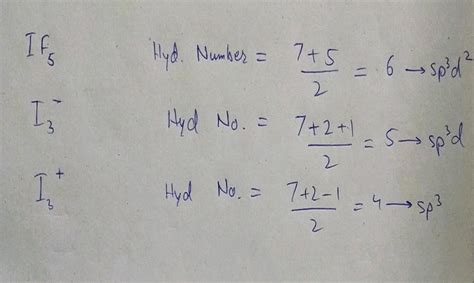 IF₅ Hyd. Number = 7+5/2 = 6 → sp³d²
I₃⁻ Hyd No. = 7+2+1/2 = 5 → sp³d
I₃⁺ Hyd No. = 7+2-1/2 = 4 → sp³